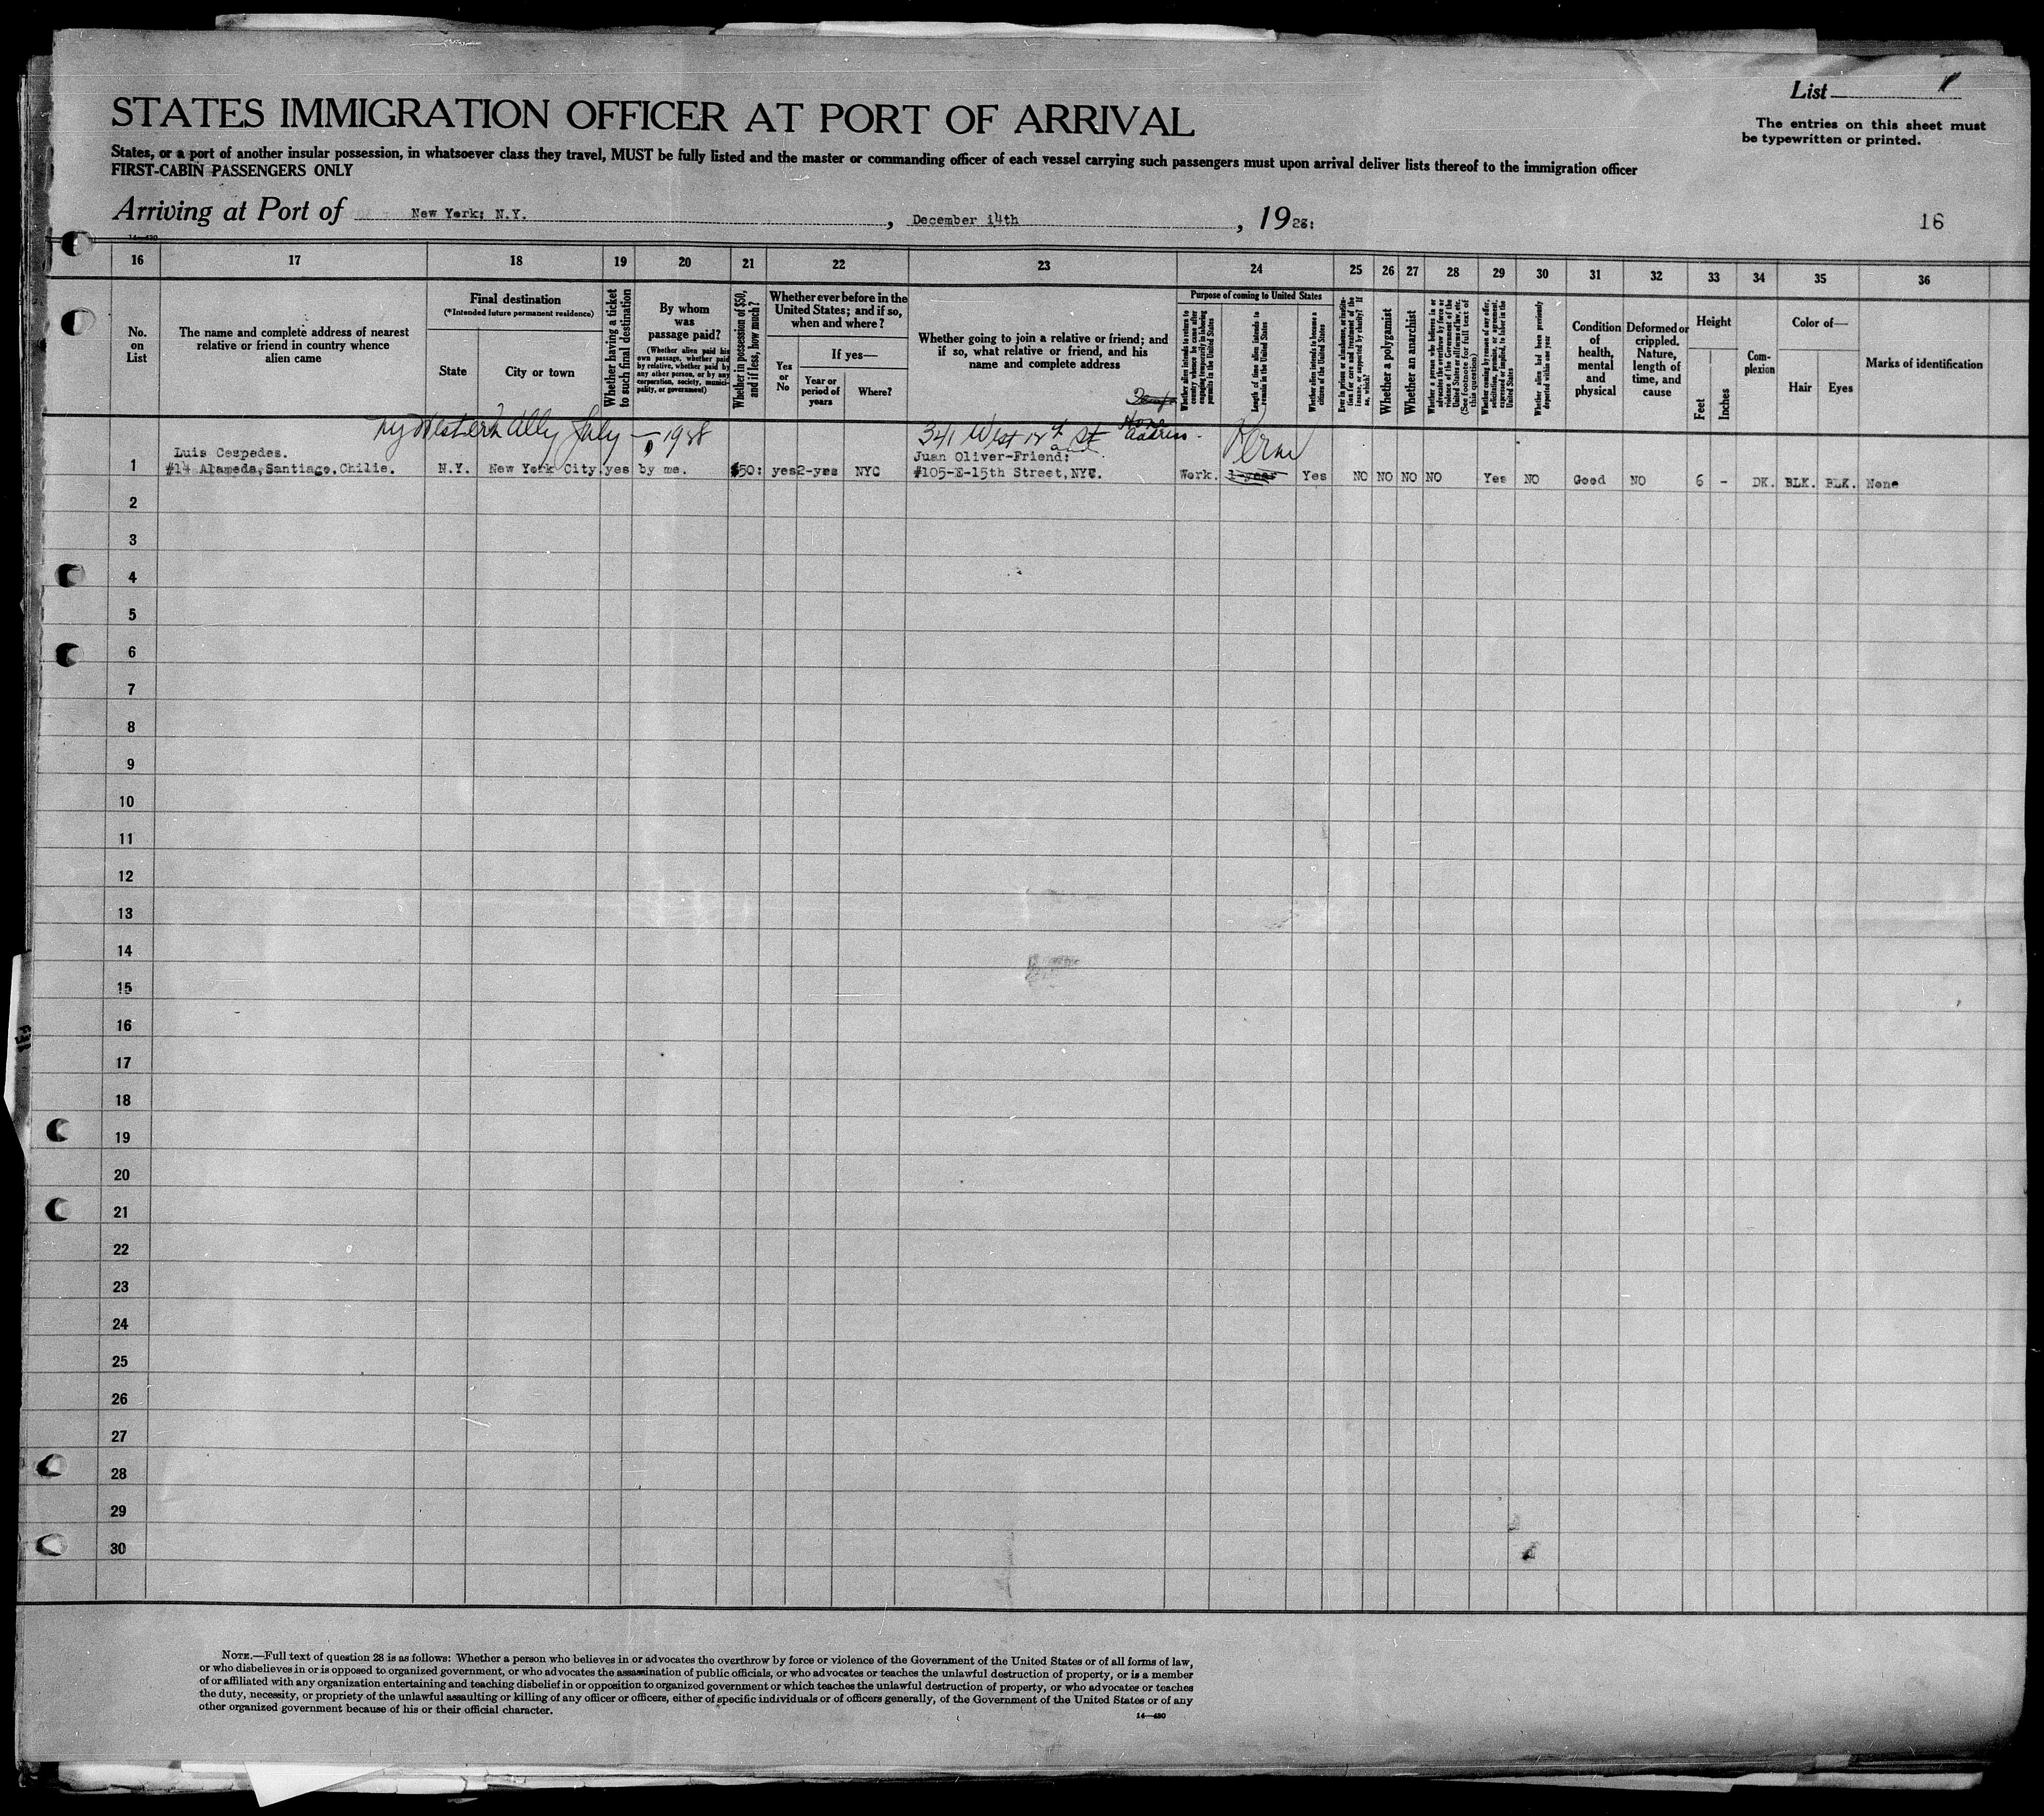 List
The entries on this sheet must
be typewritten or printed.
STATES IMMIGRATION OFFICER AT PORT OF ARRIVAL
States, or a port of another insular possession, in whatsoever class they travel, MUST be fully listed and the master or commanding officer of each vessel carrying such passengers must upon arrival deliver lists thereof to the immigration officer
FIRST-CABIN PASSENGERS ONLY
Arriving at Port of New York: N.Y., December 14th, 19
16
14—430
16 17 18 19 20 21 22 23 24 25 26 27 28 29 30 31 32 33 34 35 36
No.
on
List
The name and complete address of nearest
relative or friend in country whence
alien came
Final destination
(*Intended future permanent residence)
State
City or town
Whether having a ticket
to such final destination
By whom
was
passage paid?
(Whether alien paid his
own passage, whether paid
by relative, whether paid by
any other person, or by any
corporation, society, munici-
pality, or government)
Whether in possession of $50,
and if less, how much?
Whether ever before in the
United States; and if so,
when and where?
Yes
or
No
If yes—
Year or
period of
years
Where?
Whether going to join a relative or friend; and
if so, what relative or friend, and his
name and complete address
Purpose of coming to United States
Whether alien intends to return to
country whence he came after
engaging temporarily in laboring
pursuits in the United States
Length of time alien intends to
remain in the United States
Whether alien intends to become a
citizen of the United States
Ever in prison or almshouse, or institu-
tion for care and treatment of the
insane, or supported by charity? If
so, which?
Whether a polygamist
Whether an anarchist
Whether a person who believes in or
advocates the overthrow by force or
violence of the Government of the
United States or all forms of law, etc.
(See footnote for full text of
this question)
Whether coming by reason of any offer,
solicitation, promise, or agreement,
expressed or implied, to labor in the
United States
Whether alien had been previously
deported within one year
Condition
of
health,
mental
and
physical
Deformed or
crippled.
Nature,
length of
time, and
cause
Height
Feet
Inches
Com-
plexion
Color of—
Hair
Eyes
Marks of identification
Western Ally July — 1928
341 West 12th St Home
Address
and
Perm
Luis Cespedes. Juan Oliver-Friend:
1 #14 Alameda, Santiago, Chilie. N.Y. New York City. yes by me. $50: yes 2-yrs NYC #105-E-15th Street, NYC. Work. Yes NO NO NO NO Yes NO Good NO 6 - DK. BLK. BLK. None
2
3
4
5
6
7
8
9
10
11
12
13
14
15
16
17
18
19
20
21
22
23
24
25
26
27
28
29
30
NOTE.—Full text of question 28 is as follows: Whether a person who believes in or advocates the overthrow by force or violence of the Government of the United States or of all forms of law,
or who disbelieves in or is opposed to organized government, or who advocates the assassination of public officials, or who advocates or teaches the unlawful destruction of property, or is a member
of or affiliated with any organization entertaining and teaching disbelief in or opposition to organized government or which teaches the unlawful destruction of property, or who advocates or teaches
the duty, necessity, or propriety of the unlawful assaulting or killing of any officer or officers, either of specific individuals or of officers generally, of the Government of the United States or of any
other organized government because of his or their official character.
14—430